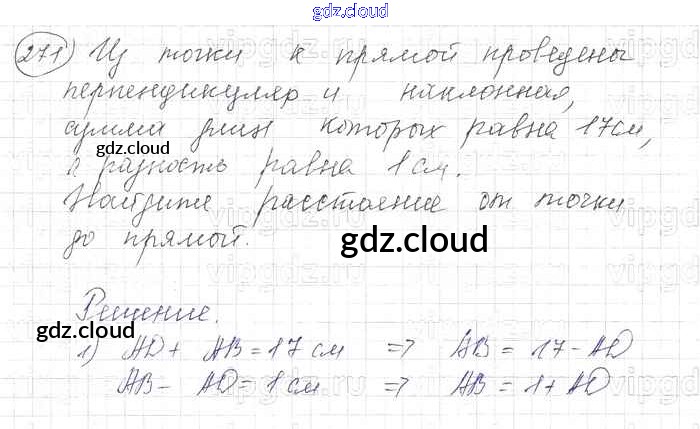 gdz.cloud
271) Из точки к прямой проведены
перпендикуляр и наклонная,
сумма длин которых равна 17см,
gdz.cloud
а разность равна 1см.
Найдите расстояние от точки
до прямой.
gdz.cloud
Решение.
gdz.cloud
1) AD + AB = 17 см => AB = 17 - AD
AB - AD = 1 см => AB = 1 + AD